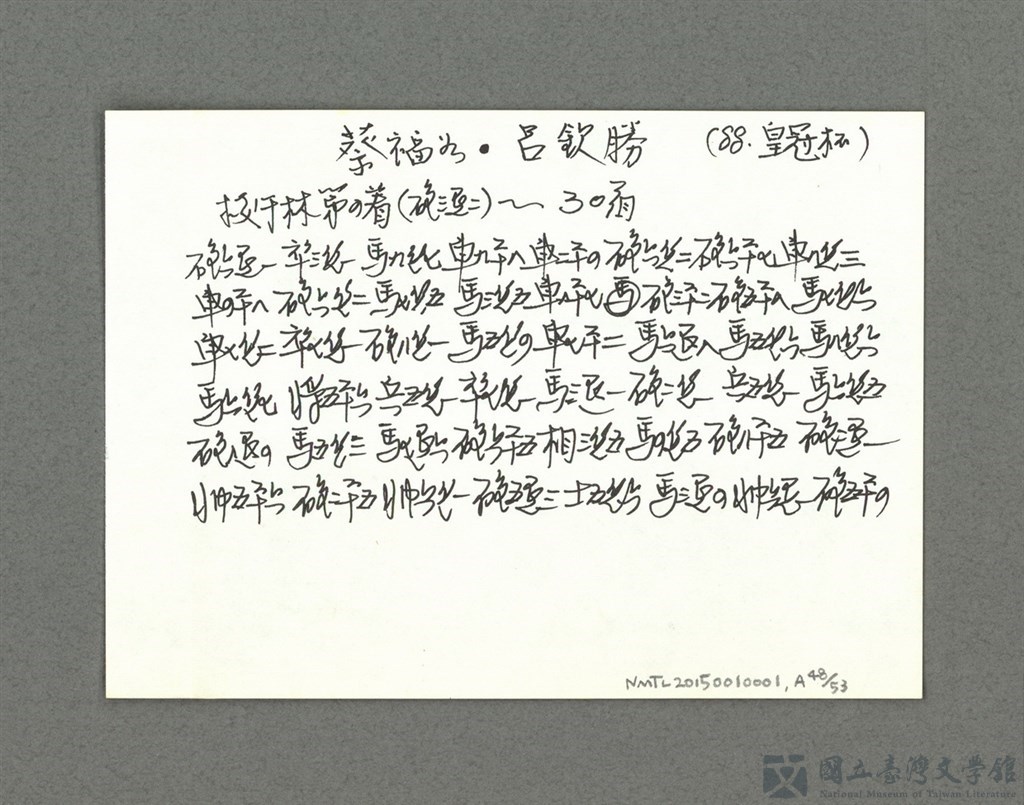 蔡福 · 呂欽勝 (88.皇冠杯)
林第 着(砲三退二)~ 30
砲六退一 卒三進一 馬九進七 車九平八 車二平四 砲六進二 砲六平七 車八進三
車四平八 砲六進二 馬七進五 馬三進五 車八平七 砲三平二 砲五平八 馬七進六
車七進二 卒七進一 砲八進一 馬五進四 車七平二 馬六退八 馬五進六 馬八進六
馬六進七 將五平六 兵五進一 卒 進一 馬三退一 砲二進一 兵五進一 馬六進五
砲八退四 馬五進三 馬七退六 砲六平五 相三進五 馬四進五 砲八平五 砲三退一
帥五平六 砲二平五 帥六進一 砲五退三 士五進六 馬三退四 帥六退一 砲五平四
NMTL20150010001, A48/53
國立臺灣文學館
National Museum of Taiwan Literature